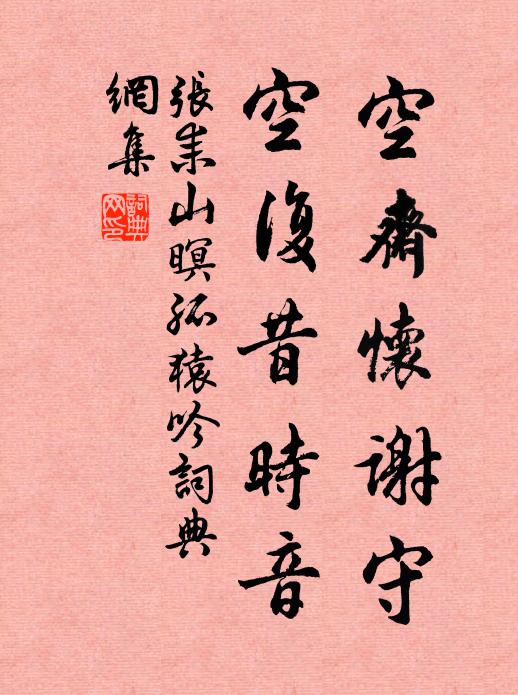 空齋懷謝守
空復昔時音
張耒山暝孤猿吟詞典
網集
詞典
网印